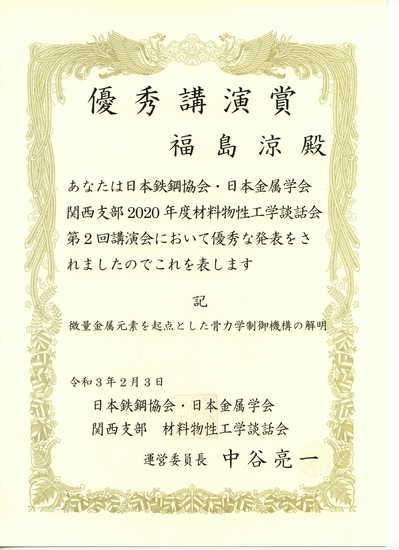 優秀講演賞
福島涼殿
あなたは日本鉄鋼協会・日本金属学会
関西支部2020年度材料物性工学談話会
第2回講演会において優秀な発表をさ
れましたのでこれを表します
記
微量金属元素を起点とした骨力学制御機構の解明
令和3年2月3日
日本鉄鋼協会・日本金属学会
関西支部 材料物性工学談話会
運営委員長 中谷亮一